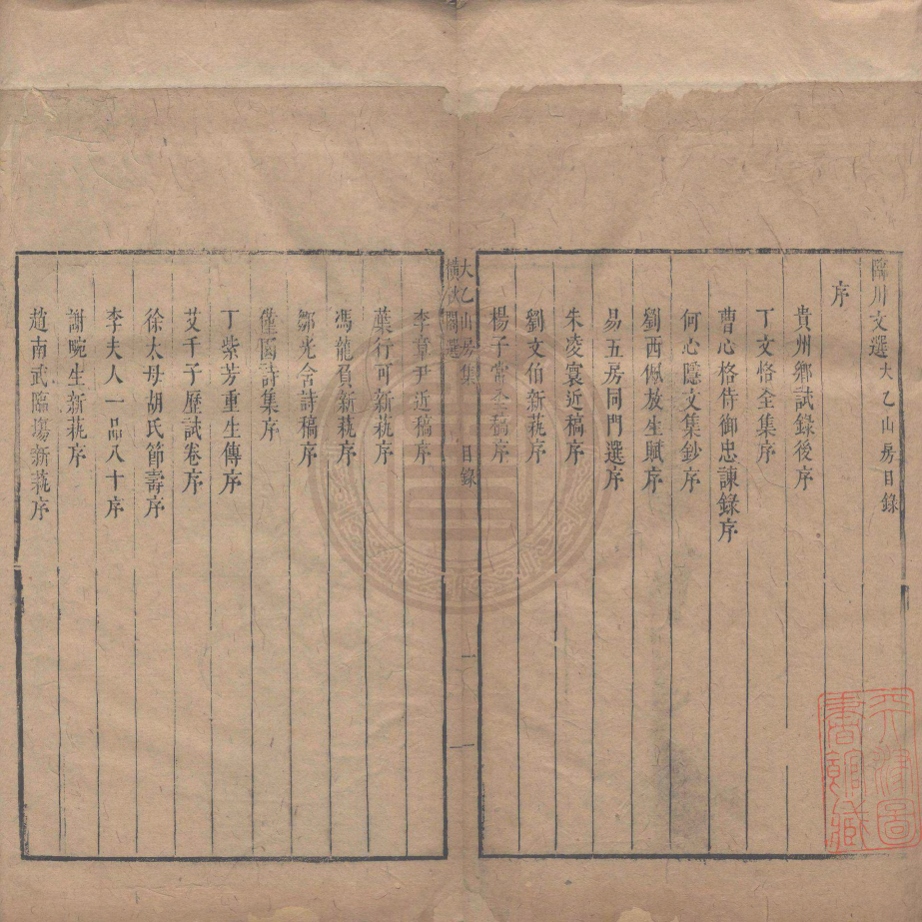 臨川文選大乙山房目錄
序
貴州鄉試錄後序
丁文恪全集序
曹心格侍御忠諫錄序
何心隱文集鈔序
劉西佩放生賦序
易五房同門選序
朱凌寰近稿序
劉文伯新蓺序
楊子常全稿序
大乙山房集 目錄 一
李章尹近稿序
葉行可新蓺序
馮龍頁新蓺序
鄒光含詩稿序
僅園詩集序
丁紫芳重生傳序
艾千子歷試卷序
徐太母胡氏節壽序
李夫人一品八十序
謝畹生新蓺序
趙南武臨場新蓺序
圖
書館藏